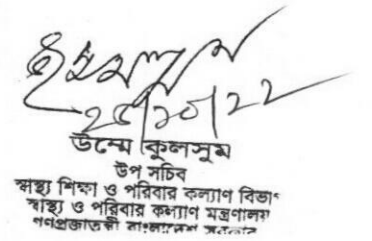 উম্মে কুলসুম
উপ সচিব
স্বাস্থ্য শিক্ষা ও পরিবার কল্যাণ বিভাগ
স্বাস্থ্য ও পরিবার কল্যাণ মন্ত্রণালয়
গণপ্রজাতন্ত্রী বাংলাদেশ সরকার